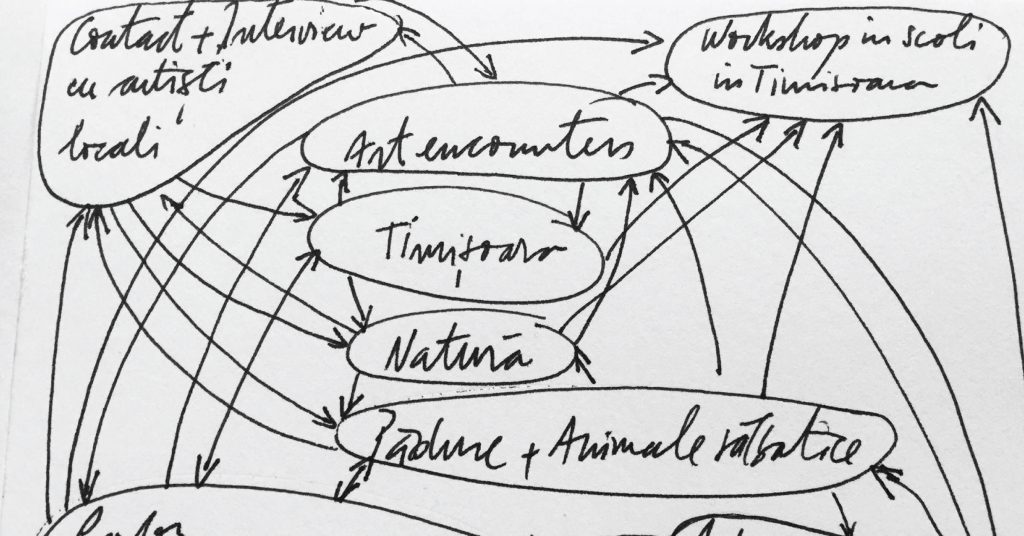 Contact + Interview
cu artiști
locali
Workshop in scoli
in Timisoara
Art encounters
Timișoara
Natură
Pădure + Animale sălbatice